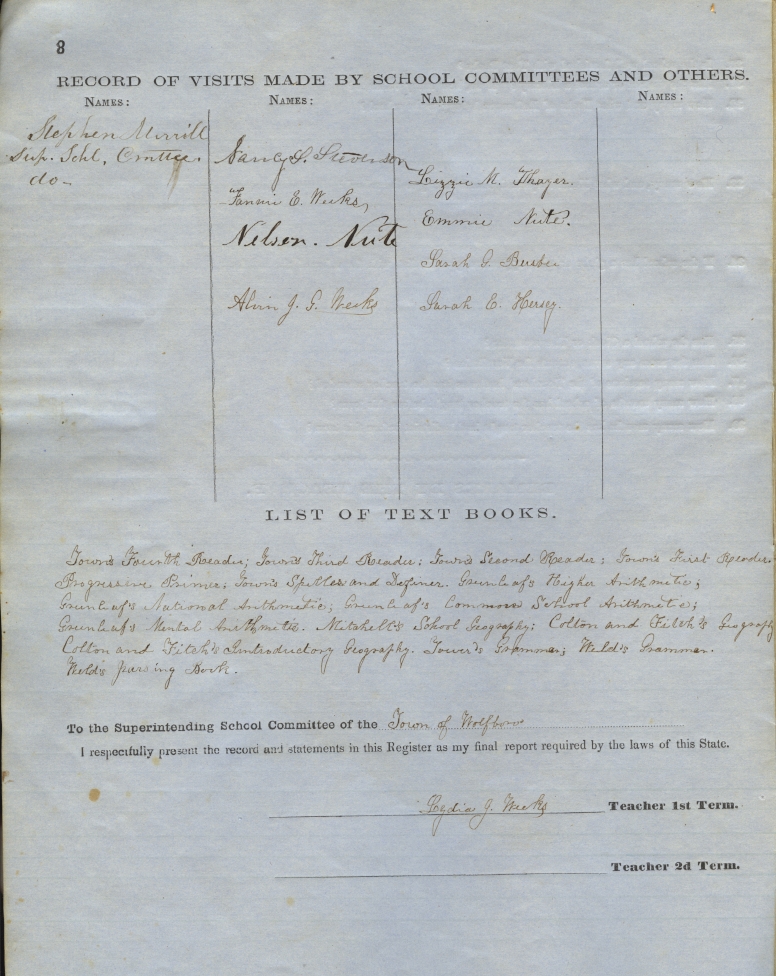 8
RECORD OF VISITS MADE BY SCHOOL COMMITTEES AND OTHERS.
NAMES: NAMES: NAMES: NAMES:
Stephen Merrill
Sup. Schl, Cmttee.
do-
Nancy S. Stevenson
Fannie E. Weeks,
Nelson. Nute
Alvin J. G. Weeks
Lizzie M. Thayer.
Emmie Nute.
Sarah G.
Sarah E. Hersey.
LIST OF TEXT BOOKS.
Town's Fourth Reader; Town's Third Reader; Town's Second Reader; Town's First Reader.
Progressive Primer; Town's Speller and Definer. Greenleaf's Higher Arithmetic;
Greenleaf's National Arithmetic; Greenleaf's Common School Arithmetic;
Greenleaf's Mental Arithmetic. Mitchell's School Geography; Colton and Fitch's Geography
Colton and Fitch's Introductory Geography. Tower's Grammar; Weld's Grammar.
Weld's parsing Book.
To the Superintending School Committee of the Town of Wolfboro
I respecfully present the record and statements in this Register as my final report required by the laws of this State.
Lydia J. Weeks Teacher 1st Term.
Teacher 2d Term.